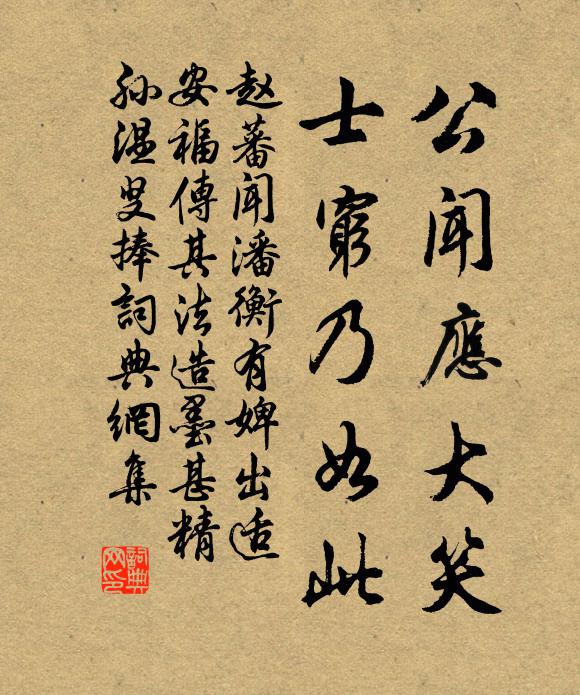 公聞應大笑
士窮乃如此
赵蕃聞潘衡有婢出适
安福傳其法造墨甚精
孙温叟捧詞典網集
詞典网印